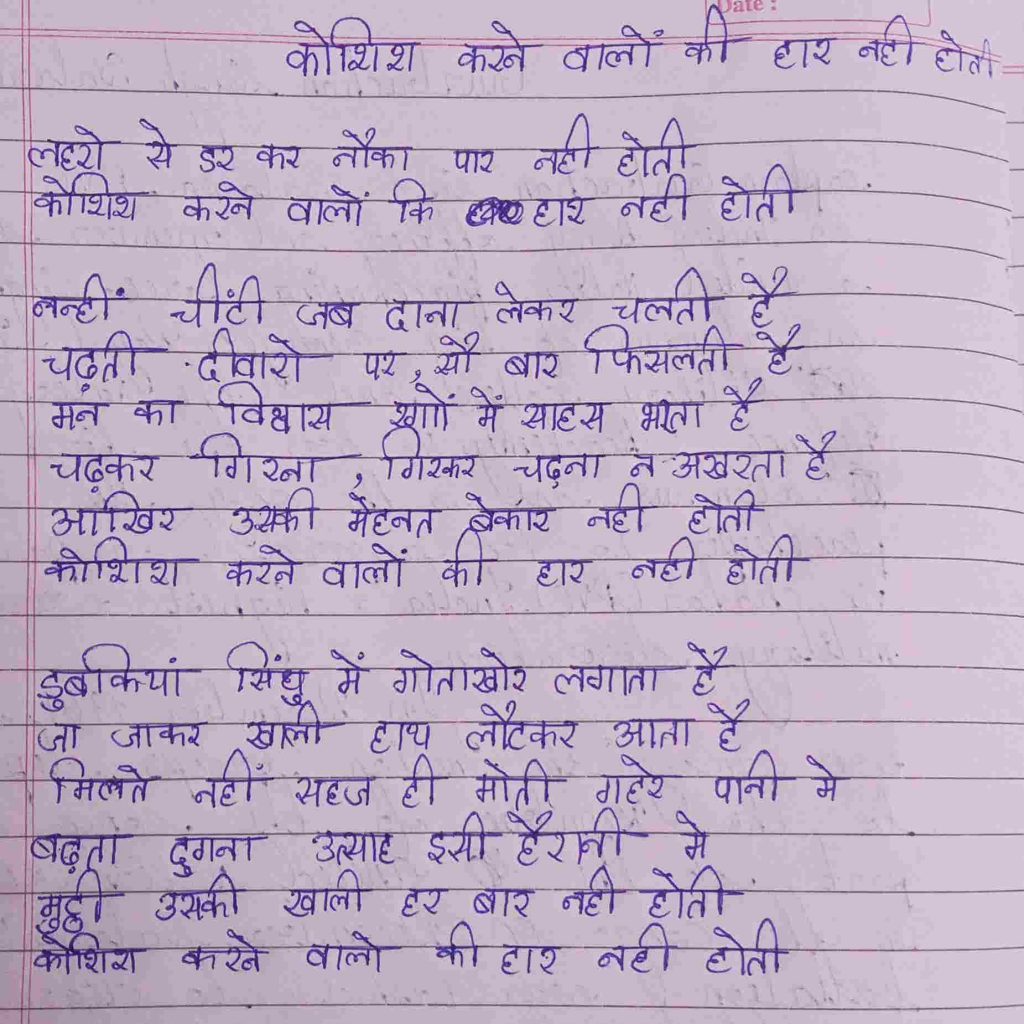 Date :
कोशिश करने वालों की हार नही होती
लहरो से डर कर नौका पार नही होती
कोशिश करने वालों कि हार नही होती
नन्हीं चींटी जब दाना लेकर चलती है
चढ़ती दीवारो पर, सौ बार फिसलती है
मन का विश्वास रगों में साहस भरता है
चढ़कर गिरना, गिरकर चढ़ना न अखरता है
आखिर उसकी मेंहनत बेकार नही होती
कोशिश करने वालों की हार नही होती
डुबकियां सिंधु में गोताखोर लगाता है
जा जाकर खाली हाथ लौटकर आता है
मिलते नहीं सहज ही मोती गहरे पानी मे
बढ़ता दुगना उत्साह इसी हैरानी मे
मुट्ठी उसकी खाली हर बार नही होती
कोशिश करने वालो की हार नही होती